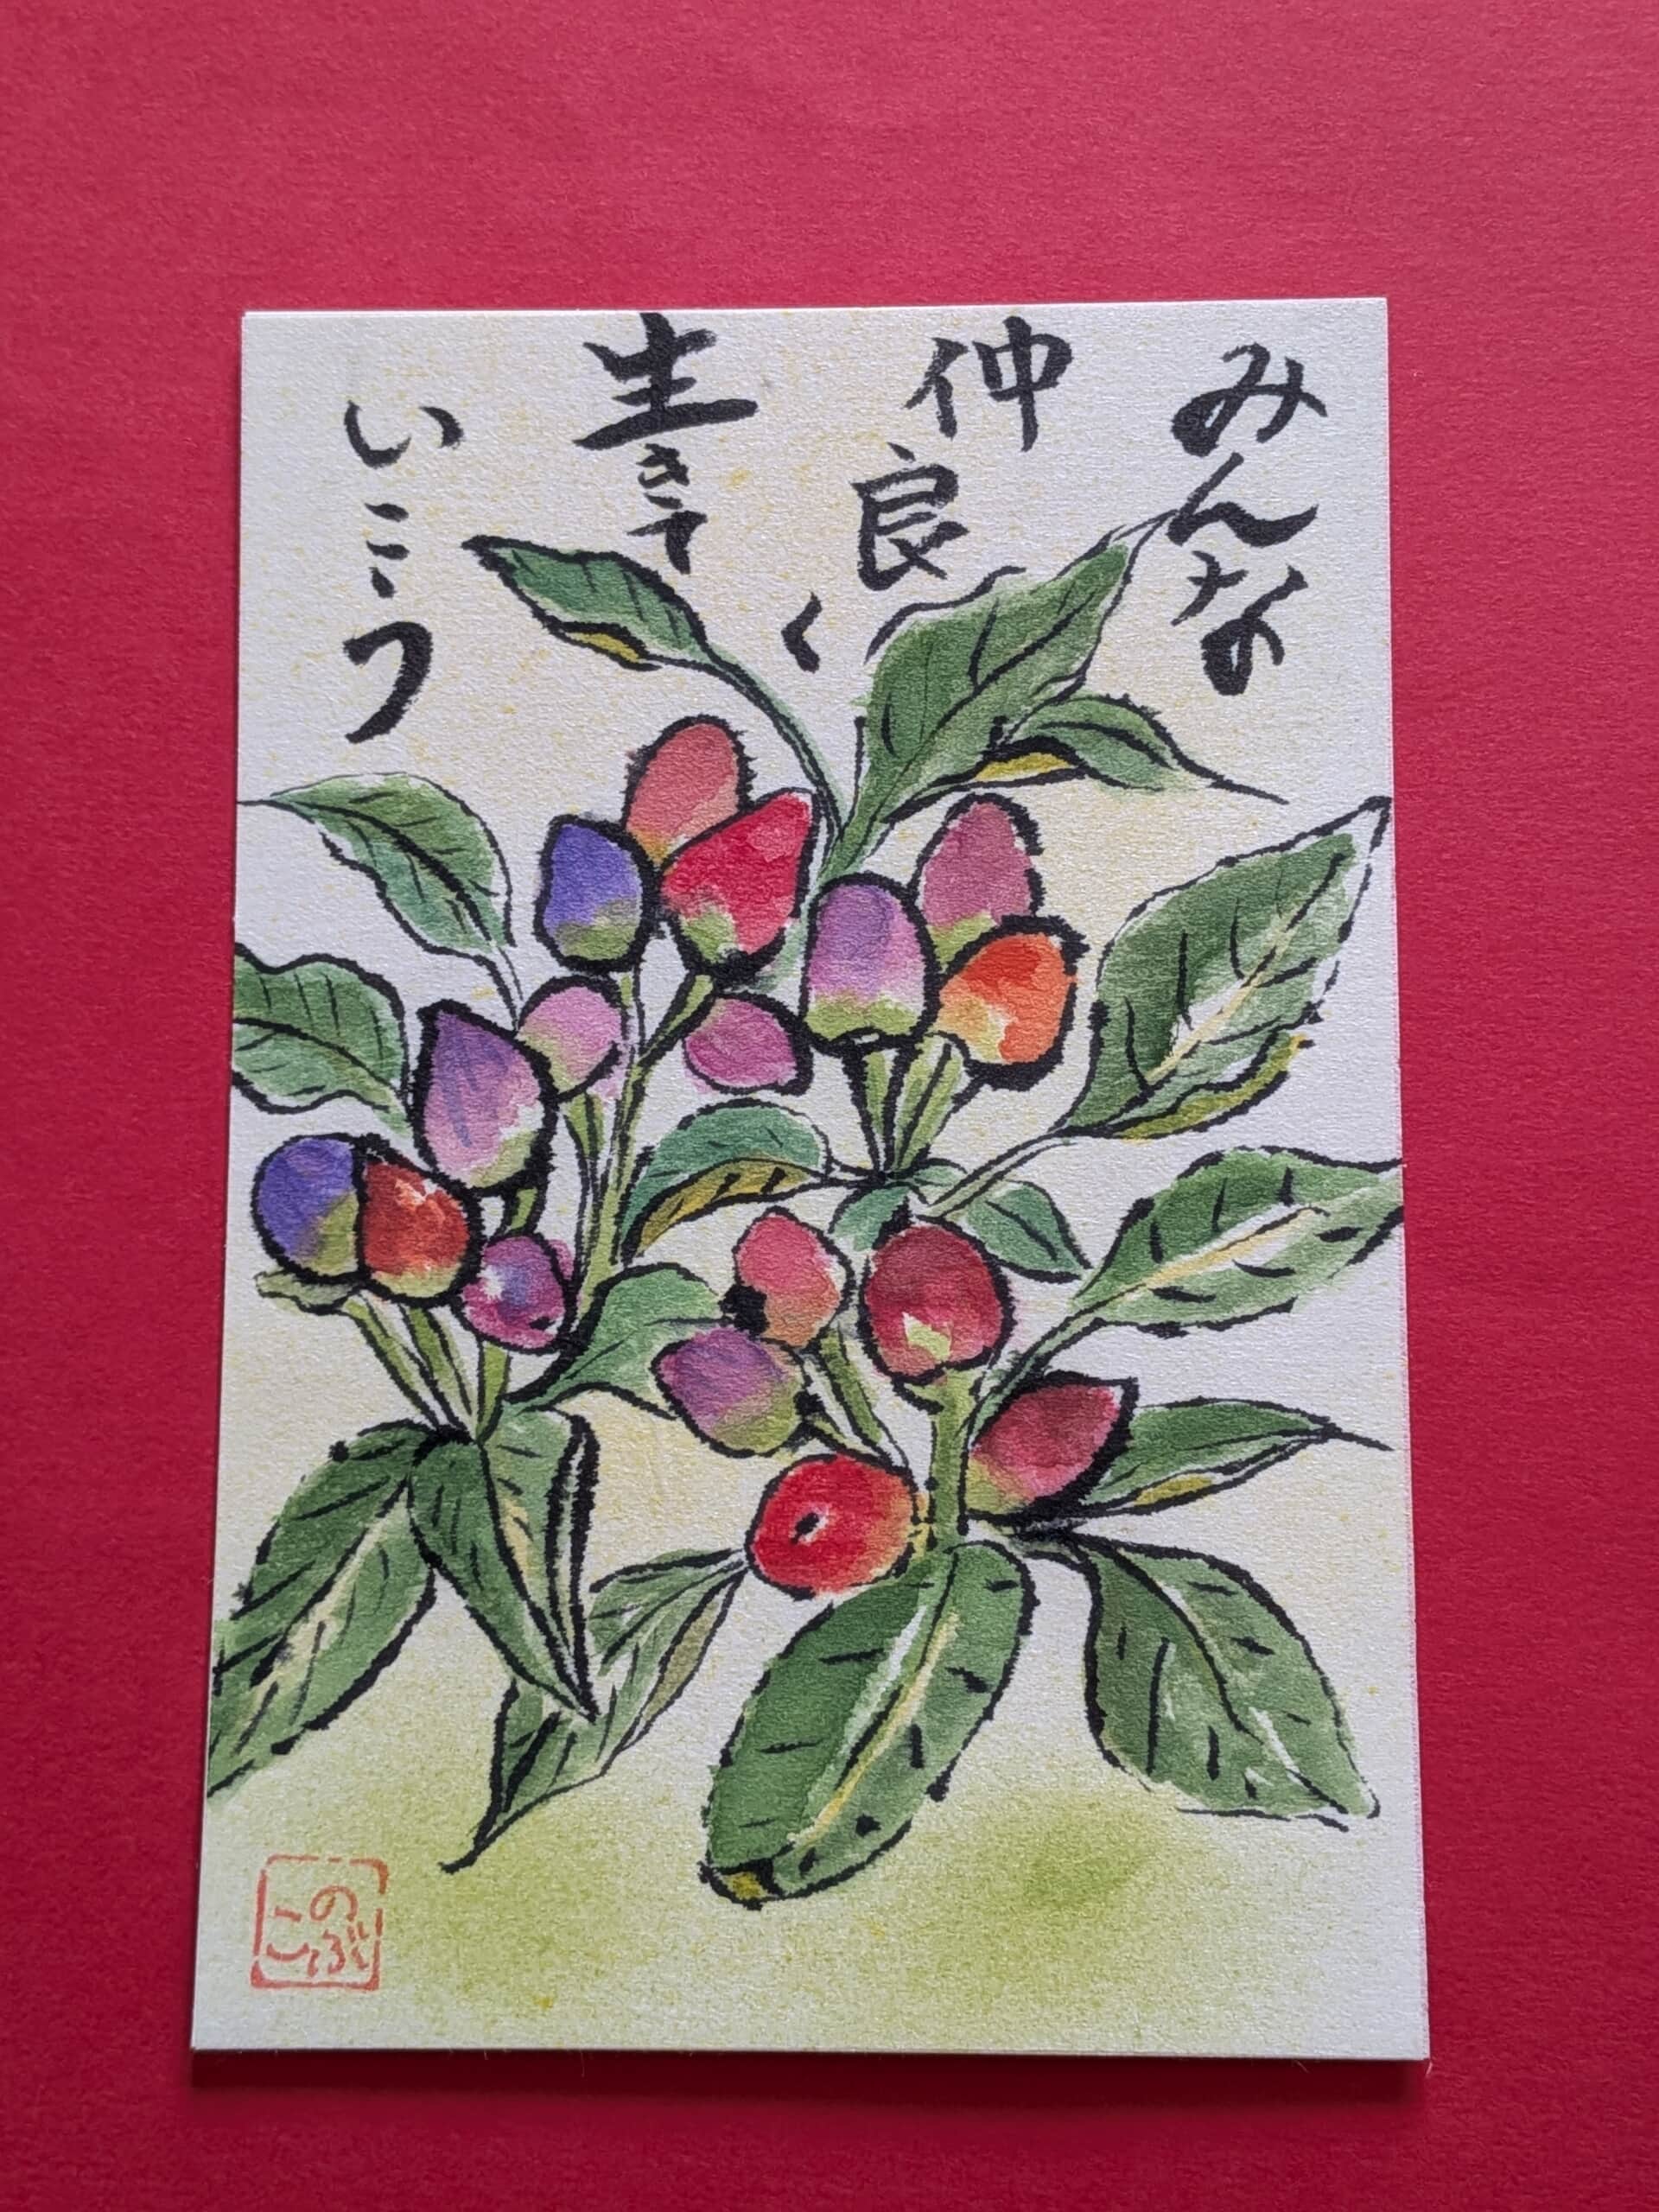 みんな
仲良く
生きて
いこう
のぶこ